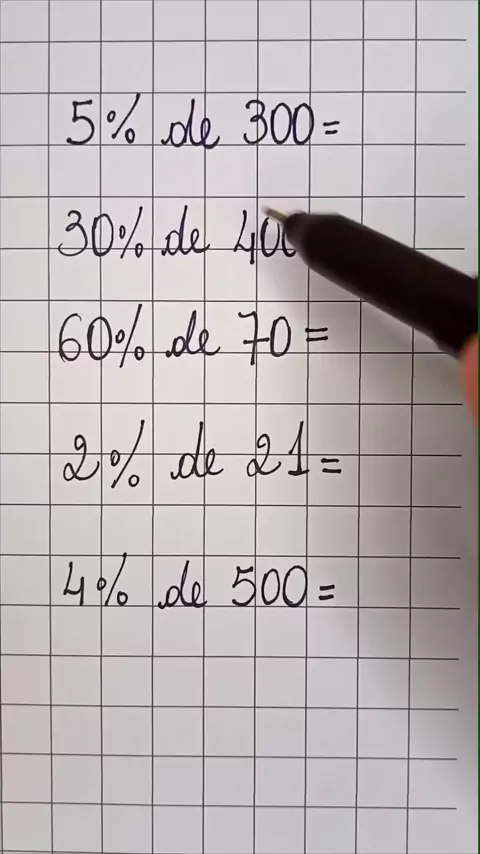 5% de 300=
30% de 400
60% de 70=
2% de 21=
4% de 500=